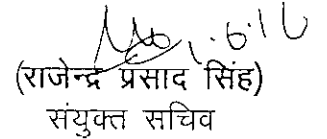 1.6.16
(राजेन्द्र प्रसाद सिंह)
संयुक्त सचिव